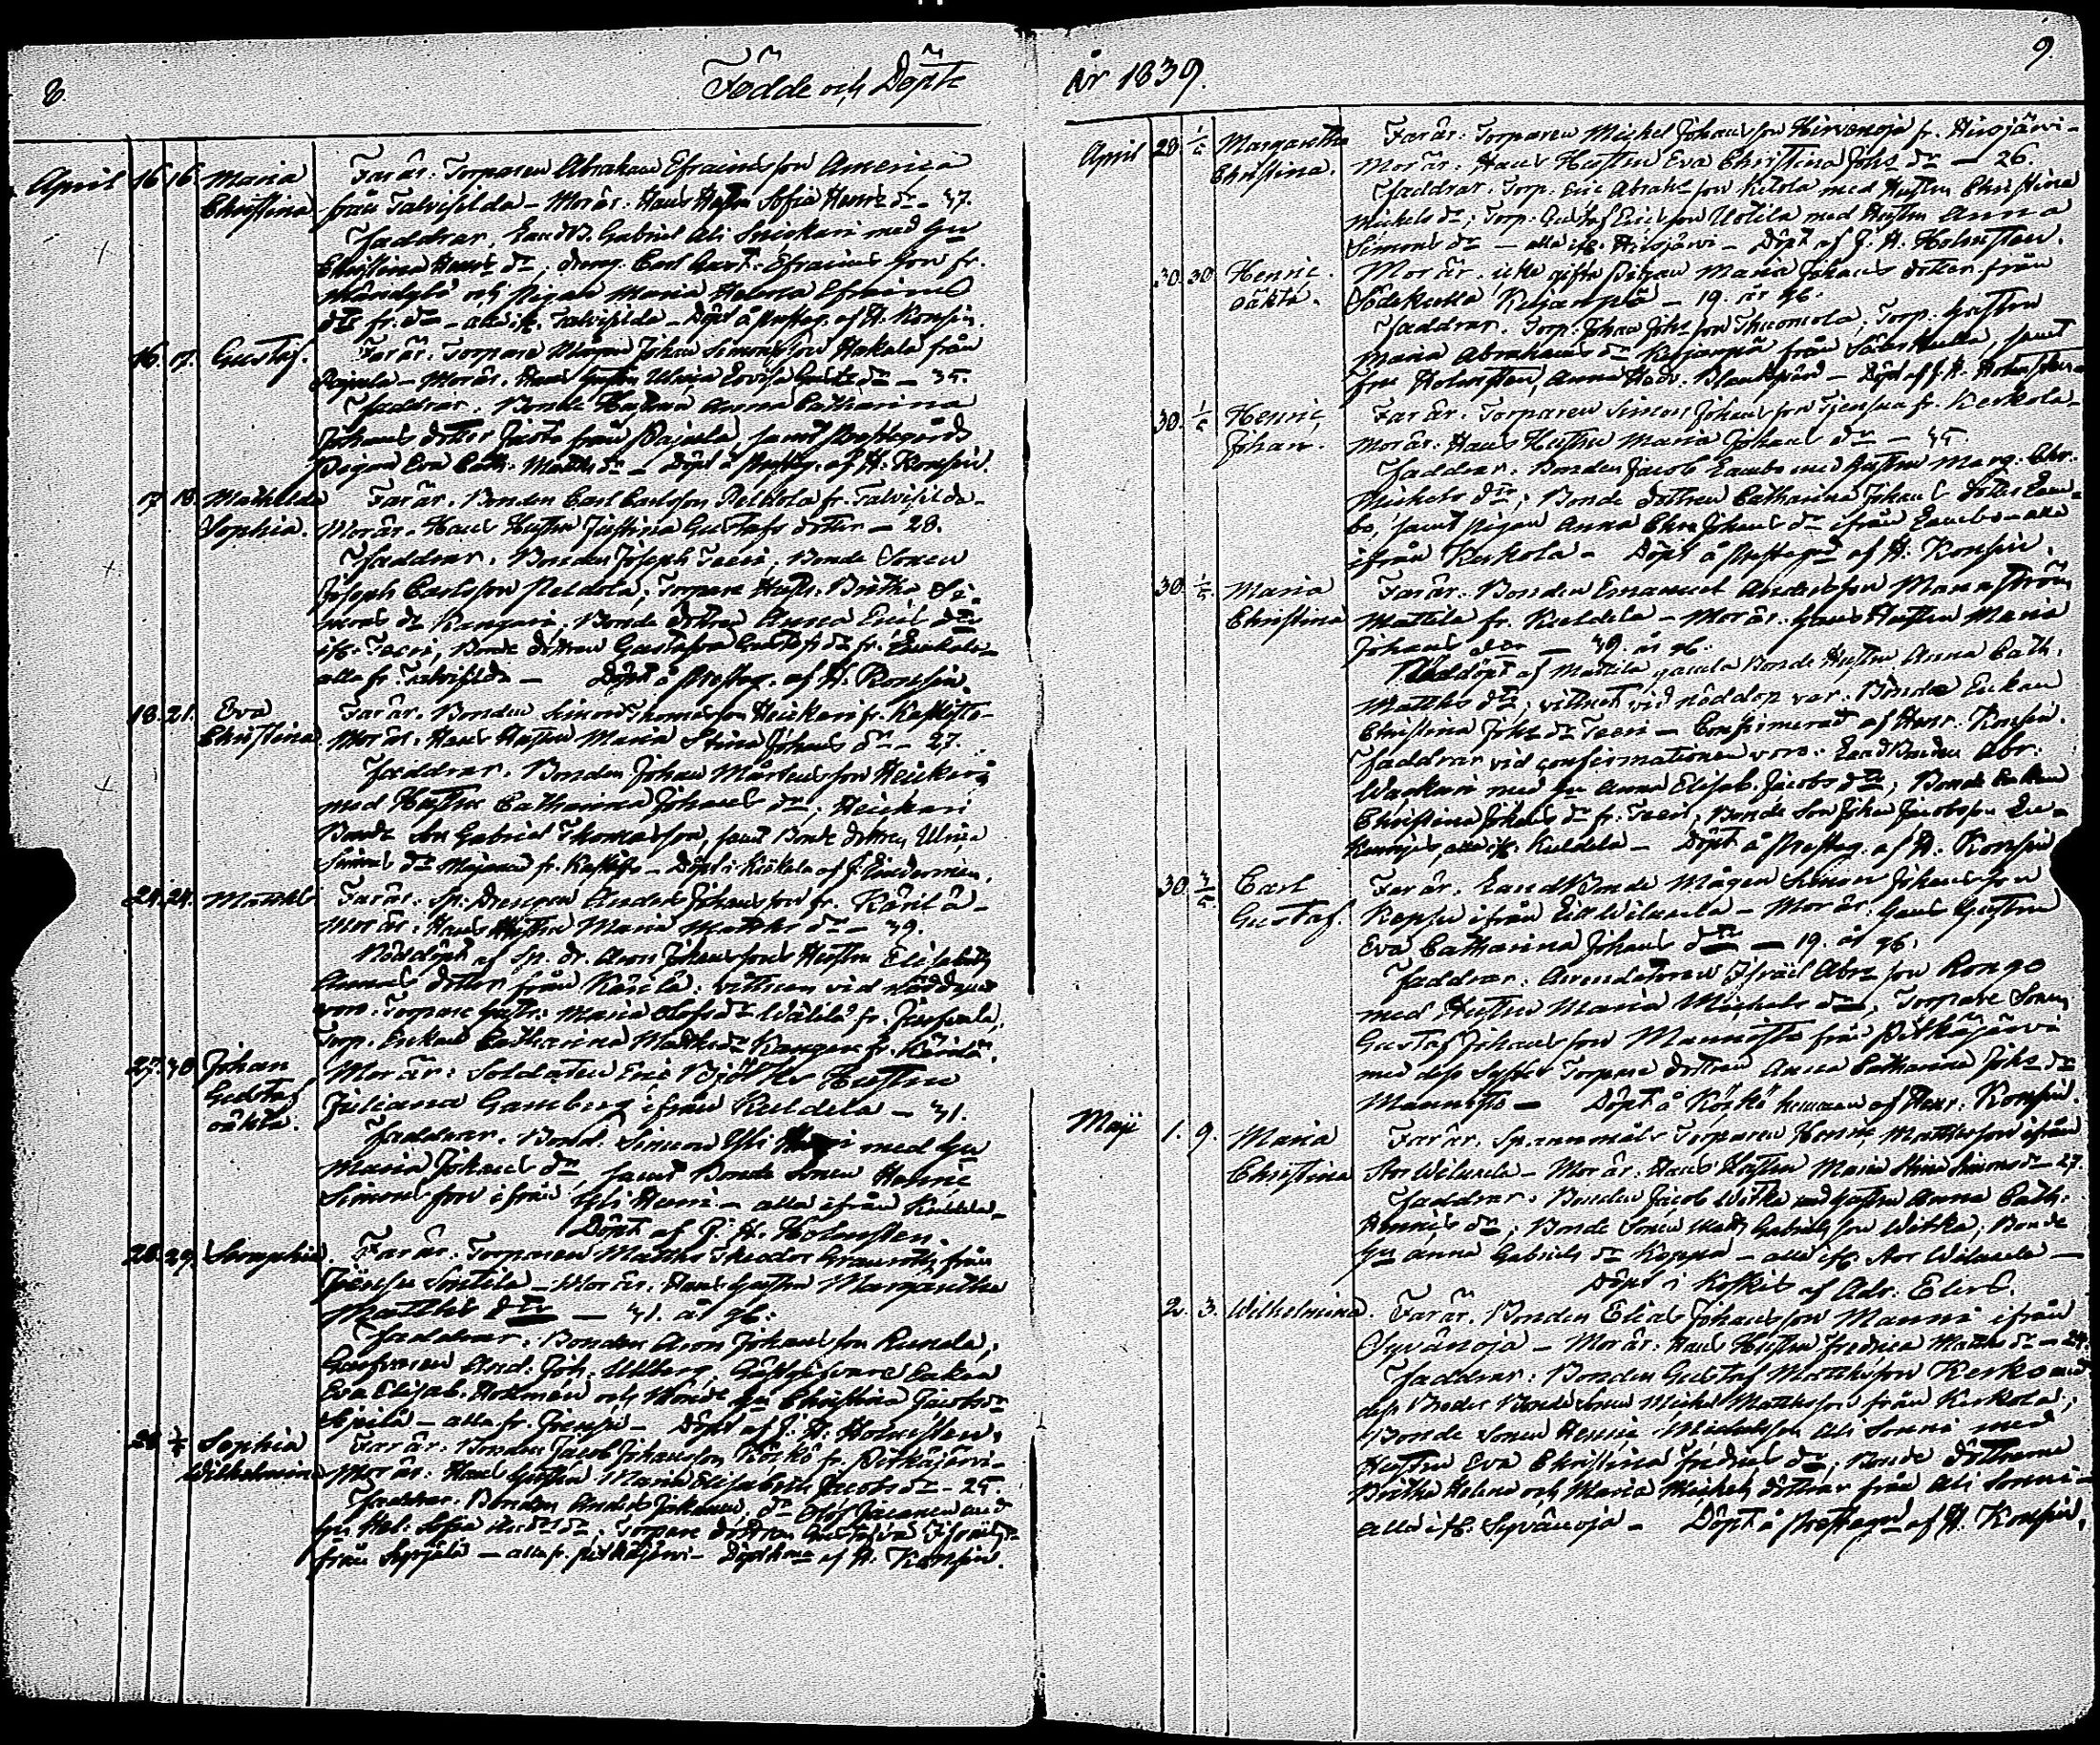 8.
Födde och Döpte
April 16 16 Maria Christina
Far är: Torparen Abraham Efraimsson America
från Talvisilda – Mor är: Hans Hustru Sofia Henrs dr – 37.
Faddrar, Gabriel Ali med Hu
Christina Henrs dr; dreng. Carl Gust: Efraims son fr.
och Pigan Maria Helena Efraims
dtr fr. – alla ifr. Talvisilda – Döpt å Presteg. af H. Konsin.
16. 17. Gustaf.
Far är. Torpare Mågen Johan Simonsson Hakala från
Pajula – Mor är. Hans Hustru Ulrica Lovisa dr – 35.
Faddrar. Bonde Hustrun Anna Catharina
Johans dotter från Pajula, samt Prestegårds
Pigan Eva Cath: Matths dr – Döpt å Presteg. af H. Konsin.
17 18. Mathilda Sophia.
Far är. Bonden Carl Carlsson Peldola fr. Talvisilda –
Mor är. Hans Hustru Justina Gustafs dotter – 28.
Faddrar. Bonden Joseph Teeri; Bonde Sonen
Joseph Carlsson Peldola; Torpare Hustr. Britha Si-
mons dr Kangari; Bonde dottren Anna Erics dtr
ifr. Teeri, Bonde dottren Gustava Gustafs dr fr.
alla fr. Talvisilda – Döpt å Presteg. af H. Konsin.
18. 21. Eva Christina
Far är. Bonden Simon Thomasson Heickeri fr. Kaskisto –
Mor är. Hans Hustru Maria Stina Johans dr – 27.
Faddrar. Bonden Johan Mårtensson Heickeri
med Hustru Catharina Johans dr; Heickeri
Bonde Son Gabriel Thomasson, samt Bonde dottren Ulrica
Simons dr fr. Kaskisto – Döpt i af J. Lindermen.
24. 24. Matths
Far är. Sp. Drengen Anders Johansson fr. Kärilä –
Mor är. Hans Hustru Maria Matths dr – 39.
Nöddöpt af Sp. dr. Aron Johanssons Hustru Elisabeth
dotter från Kärilä: vittnen vid nöddopet
voro. Torpare Hustr: Maria Olofs dr fr.
Torp. Enkan Catharina Matths dr Kangas fr. Kärilä.
27. 30 Johan Gustaf oäkta.
Mor är: Soldaten Eric Björks Hustru
Juliana Gamberg ifrån Kuldela – 31.
Faddrar. Bond. Simon Yli med Hu
Maria Johans dr, samt Bonde Sonen Henric
Simons son ifrån Yli – alla ifrån Kuldela –
Döpt af J. H. Holmsten.
28. 29. Seraphia.
Far är: Torparen Matths Theodor Granroth från
Joensu – Mor är: Hans Hustru Margaretha
Matths dtr – 31. år gl:
Faddrar: Bonden Aron Johansson
And. Joh. Ahlberg, Gästgifvare Enkan
Eva Elisab. och Bonde Hu Christina Jacobs dr
– alla fr. Joensu – Döpt af J. H. Holmsten.
Sophia Wilhelmina
Far är. Bonden Jacob Johansson Körkö fr. Pitkäjärvi –
Mor är: Hans Hustru Maria Elisabeth Jacobs dr – 25.
Faddrar. Bonden Anders
Hu Hel. Sofia dr; Torpare dottren Gustava Israels dr
från Syrjälä – alla fr. Pitkäjärvi – af H. Konsin.
År 1839.
9.
April 29 1/5 Margaretha Christina.
Far är: Torparen Michel Johansson Hirvonoja fr. Hirsjärvi –
Mor är: Hans Hustru Eva Christina Johs dr – 26.
Faddrar. Torp. Eric Abrahs son Kitola med Hustru Christina
Michels dr; Torp. Gustaf Ericsson Uotila med Hustru Anna
Simons dr – alla ifr. Hirsjärvi – Döpt af J. H. Holmsten.
30. 30. Henric. oäkta.
Mor är: icke gifta Pigan Maria Johans dotter från
Söderkulla – 19. år gl.
Faddrar. Torp. Johan Johs son Thuomola, Torp. Hustru
Maria Abrahams dr från Söderkulla, samt
fru Holmsten, Anna Hedv. – Döpt af J. H. Holmsten.
30. 1/5 Henric Johan.
Far är. Torparen Simon Johansson fr. Kerkola –
Mor är: Hans Hustru Maria Johans dr – 35.
Faddrar: Bonden Jacob Lambo med Hustru Marg: Chr:
Michels dtr; Bonde dottren Catharina Johans dotter Lam-
bo, samt Pigan Anna Chr: Johans dr ifrån Lambo – alla
ifrån Kerkola – Döpt å Prestegd af H. Konsin.
30. 1/5 Maria Christina
Far är. Bonden Emanuel Andersson Manström
Mattila fr. Kuldela – Mor är. Hans Hustru Maria
Johans dtr – 39. år gl.
Nöddöpt af Mattila gamla Bonde Hustru Anna Cath.
Matths dtr; vittnet vid nöddop var. Bonde Enkan
Christina Johs dr Teeri – Confirmerad af Henr. Konsin.
Faddrar vid confirmationen voro: Abr:
med Hu Anna Elisab. Jacobs dtr; Bonde Enkan
Christina Johans dr fr. Teeri; Bonde Son Johan Jacobsson
alla ifr. Kuldela – Döpt å Presteg. af H. Konsin
30. 3/5 Carl Gustaf.
Far är. Bonde Mågen Simon Johansson
ifrån Lill Wiluxela – Mor är: Hans Hustru
Eva Catharina Johans dtr – 19. år gl.
Faddrar: Arendatoren Israël Abrs son Rongo
med Hustru Maria Michels dr, Torpare Sonen
Gustaf Johansson Mannisto från Pitkäjärvi
med dess Syster Torpare dottren Anna Catharina Johs dr
Mannisto – Döpt å Körkö hemman af Henr. Konsin.
Maji 1. 9. Maria Christina
Far är. Sp. annmäls Torparen Henric Matthsson ifrån
Stor Wiluxela – Mor är: Hans Hustru Maria Stina Simons dr – 27.
Faddrar. Bonden Jacob Witka med Hustru Anna Cath.
Henrics dr; Bonde Sonen Matts Gabriels son Witka; Bonde
Hu Anna Gabriels dr Koppa – alla ifr. Stor Wiluxela –
Döpt i Koskis af Adr. Elers.
2. 3. Wilhelmina.
Far är. Bonden Elias Johansson Manni ifrån
Syvänoja – Mor är: Hans Hustru Fredrica Matths dr – 24.
Faddrar: Bonden Gustaf Matthsson Kerko med
dess Broder Bonde Sonen Michel Matthsson från Kerkola;
Bonde Sonen Henric Michelsson Ali Sonni med
Hustru Eva Christina Fredrics dr; Bonde döttrarne
Britha Helena och Maria Michels döttrar från Ali Sonni –
alla ifr. Syvänoja – Döpt å Prestegd af H. Konsin.